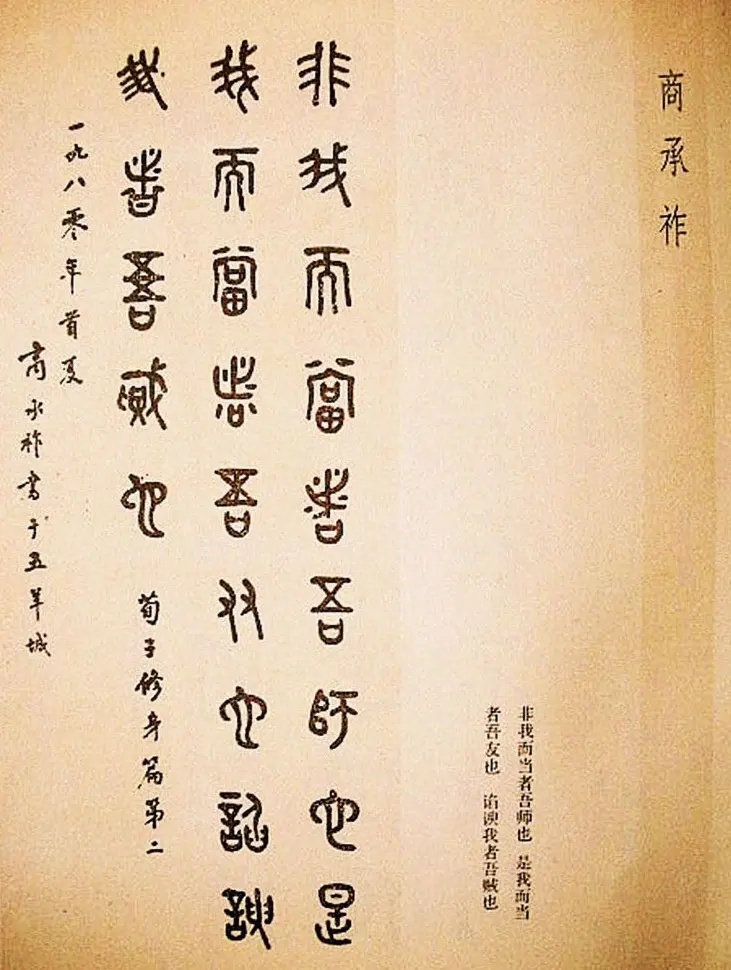 商承祚
非我而当者吾师也 是我而当
者吾友也 谄谀我者吾贼也
非我而當者吾師也是
我而當者吾友也諂諛
我者吾賊也 荀子修身篇第二
一九八零年首夏
商承祚書于五羊城